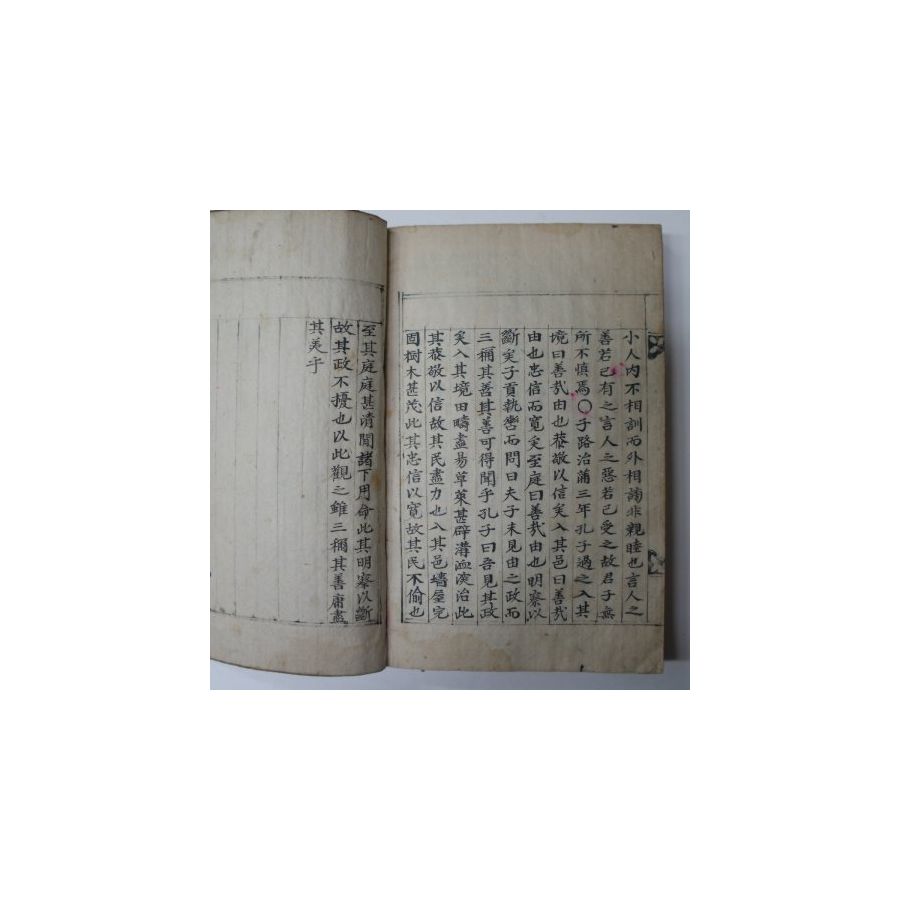 小人內不相訓而外相謗非親睦也言人之
善若己有之言人之惡若己受之故君子無
所不慎焉〇子路治蒲三年孔子過之入其
境曰善哉由也恭敬以信矣入其邑曰善哉
由也忠信而寬矣至庭曰善哉由也明察以
斷矣子貢執轡而問曰夫子未見由之政而
三稱其善其善可得聞乎孔子曰吾見其政
矣入其境田疇盡易草萊甚辟溝洫深治此
其恭敬以信故其民盡力也入其邑墻屋完
固樹木甚茂此其忠信以寬故其民不偷也
至其庭庭甚清閒諸下用命此其明察以斷
故其政不擾也以此觀之雖三稱其善庸盡
其美乎